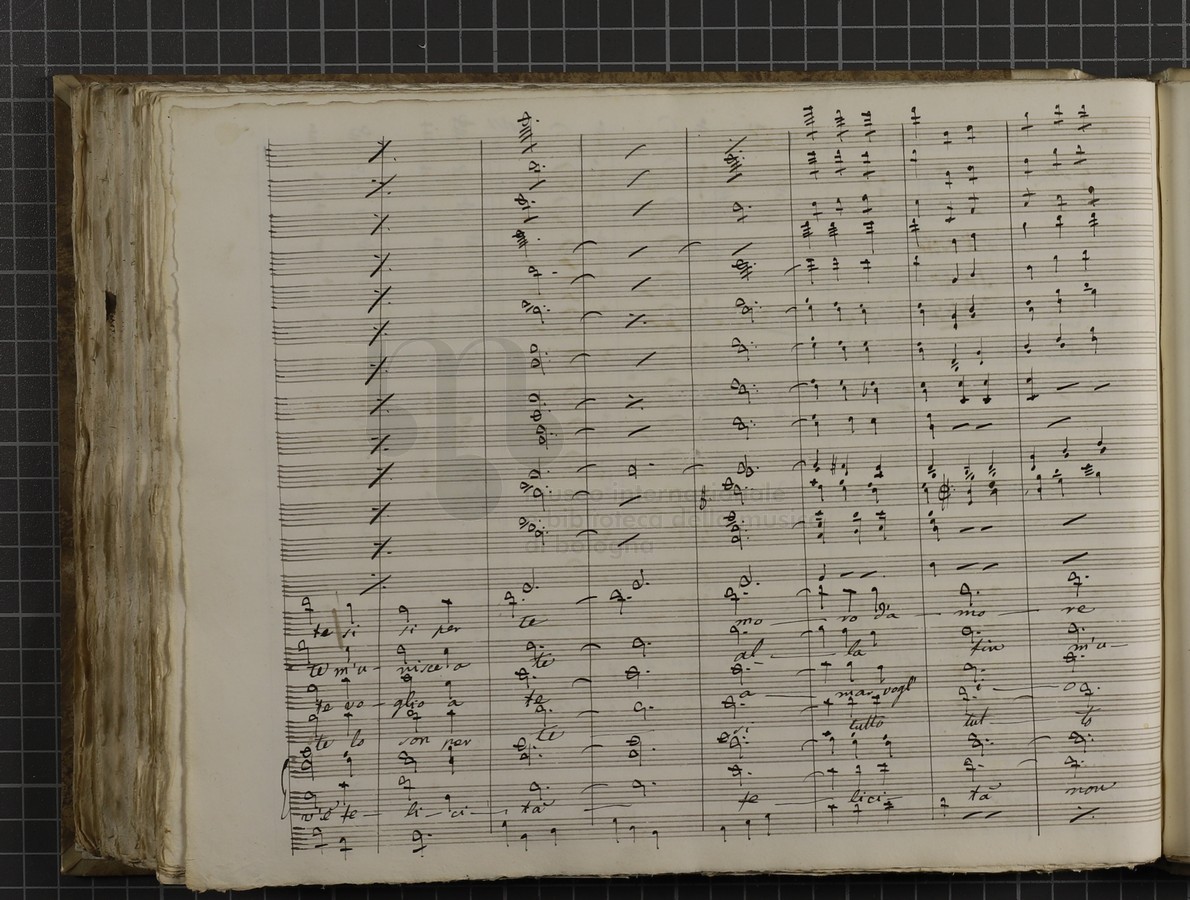 museo internazionale
e biblioteca della musica
di bologna
te si si per te mo ro d'a mo re
te m'u nisce a te al la fin m'u
te vo glio a te a mar vogl' i o
te lo son per te si tutto tut to
v'è fe li ci tà fe lici tà non